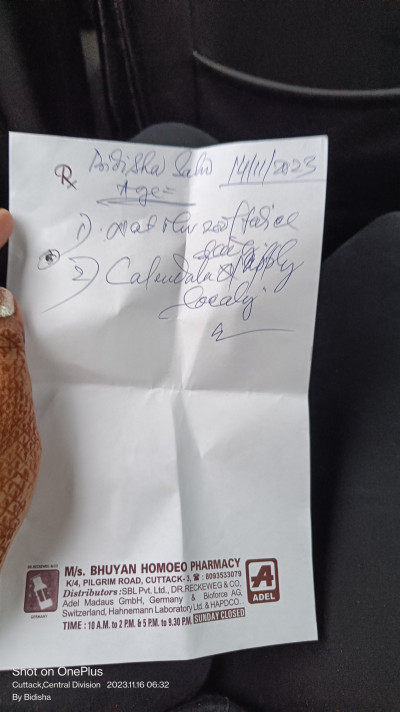 Rx Bidisha Sahu 14/11/2023
Age =
1) Nat Mur 200 twice
daily
2) Calendula Q apply
localy
M/s. BHUYAN HOMOEO PHARMACY
K/4, PILGRIM ROAD, CUTTACK-3, ☎ : 8093533079
Distributors : SBL Pvt. Ltd., DR. RECKEWEG & CO.
Adel Madaus GmbH, Germany & Bioforce AG,
Switzerland, Hahnemann Laboratory Ltd. & HAPDCO..
TIME : 10 A.M. to 2 P.M. & 5 P.M. to 9.30 P.M. SUNDAY CLOSED
GERMANY
A
ADEL
Shot on OnePlus
Cuttack,Central Division 2023.11.16 06:32
By Bidisha